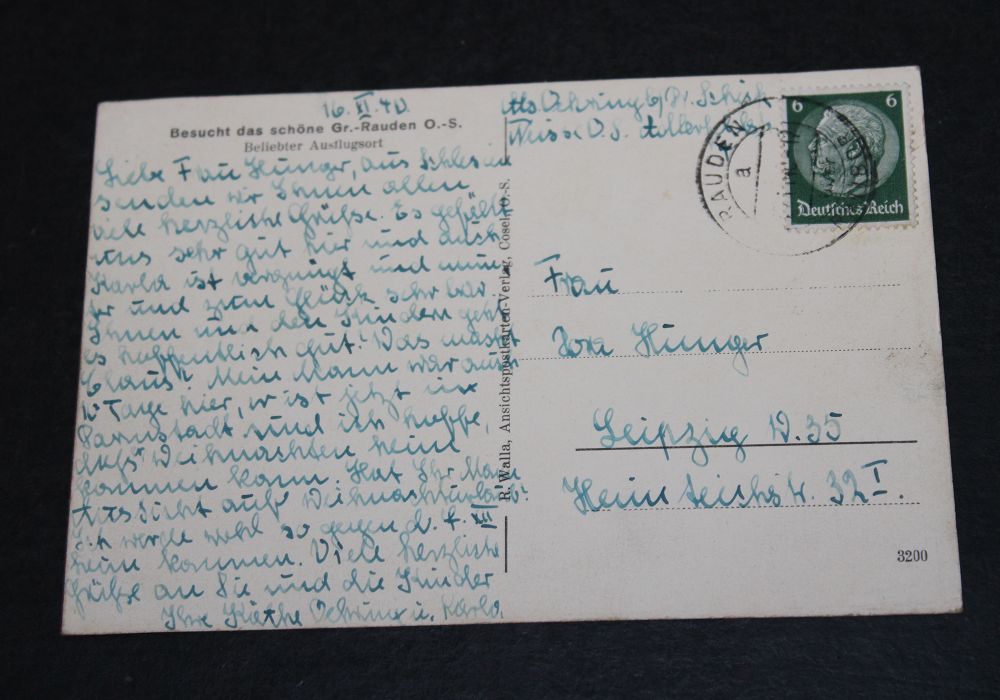 16. XI. 40.
Besucht das schöne Gr.-Rauden O.-S.
Beliebter Ausflugsort
Liebe Frau Hunger, aus Schlesien
senden wir Ihnen allen
viele herzliche Grüße. Es gefällt
uns sehr gut hier und auch
Karla ist vergnügt und
und zum Glück sehr
Ihnen und den Kindern geht
es hoffentlich gut. Was macht
Claus? Mein Mann war auch
Tage hier, er ist jetzt in
und ich hoffe,
daß Weihnachten heim
kommen kann. Hat Ihr Mann
Aussicht auf Weihnachtsurlaub?
Ich werde wohl so gegen d. XII
heim kommen. Viele herzliche
Grüße an Sie und die Kinder
Ihre Käthe Oehring u. Karla
R. Walla, Ansichtspostkarten-Verlag, Cosel, O.-S.
Abs. Oehring b/
Neisse O.S.
RAUDEN
a
6 6
Deutsches Reich
Frau
Hunger
Leipzig W.35
32 I.
3200